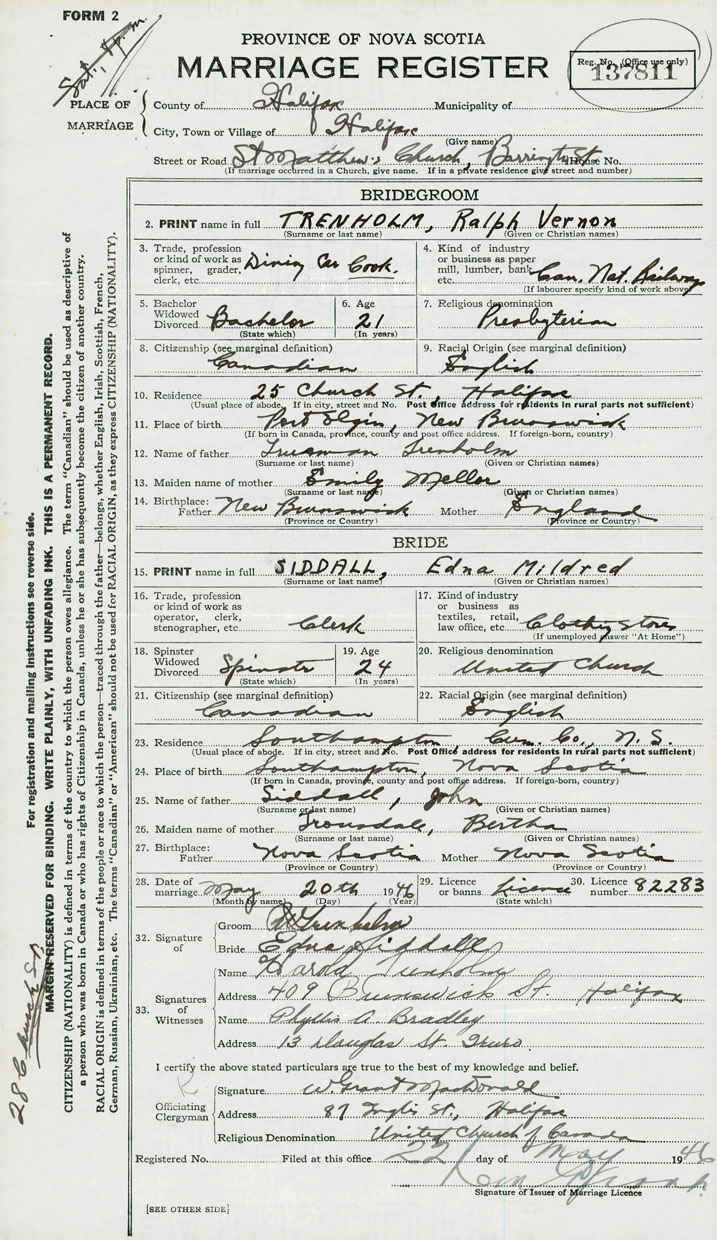 FORM 2
Sat, 4 p.m.
PROVINCE OF NOVA SCOTIA
MARRIAGE REGISTER
Reg. No. (Office use only)
137811
PLACE OF MARRIAGE
County of Halifax Municipality of
City, Town or Village of Halifax
(Give name)
Street or Road St Matthew's Church, Barrington St. House No.
(If marriage occurred in a Church, give name. If in a private residence give street and number)
BRIDEGROOM
2. PRINT name in full TRENHOLM, Ralph Vernon
(Surname or last name) (Given or Christian names)
3. Trade, profession or kind of work as spinner, grader, clerk, etc. Dining Car Cook.
4. Kind of industry or business as paper mill, lumber, bank, etc. Can. Nat. Railways
(If labourer specify kind of work above)
5. Bachelor Widowed Divorced Bachelor
(State which)
6. Age 21
(In years)
7. Religious denomination
Presbyterian
8. Citizenship (see marginal definition)
Canadian
9. Racial Origin (see marginal definition)
English
10. Residence 25 Church St., Halifax
(Usual place of abode. If in city, street and No. Post Office address for residents in rural parts not sufficient)
11. Place of birth Port Elgin, New Brunswick
(If born in Canada, province, county and post office address. If foreign-born, country)
12. Name of father Trueman Trenholm
(Surname or last name) (Given or Christian names)
13. Maiden name of mother Emily Meller
(Surname or last name) (Given or Christian names)
14. Birthplace: Father New Brunswick Mother England
(Province or Country) (Province or Country)
BRIDE
15. PRINT name in full SIDDALL, Edna Mildred
(Surname or last name) (Given or Christian names)
16. Trade, profession or kind of work as operator, clerk, stenographer, etc Clerk
17. Kind of industry or business as textiles, retail, law office, etc. Clothing Store
(If unemployed answer "At Home")
18. Spinster Widowed Divorced Spinster
(State which)
19. Age 24
(In years)
20. Religious denomination
United Church
21. Citizenship (see marginal definition)
Canadian
22. Racial Origin (see marginal definition)
English
23. Residence Southampton Cum. Co., N. S.
(Usual place of abode. If in city, street and No. Post Office address for residents in rural parts not sufficient)
24. Place of birth Southampton, Nova Scotia
(If born in Canada, province, county and post office address. If foreign-born, country)
25. Name of father Siddall, John
(Surname or last name) (Given or Christian names)
26. Maiden name of mother Bertha
(Surname or last name) (Given or Christian names)
27. Birthplace: Father Nova Scotia Mother Nova Scotia
(Province or Country) (Province or Country)
28. Date of marriage May 20th 1946
(Month by name) (Day) (Year)
29. Licence or banns Licence
(State which)
30. Licence number 82283
32. Signature of
Groom R V Trenholm
Bride Edna Siddall
33. Signatures of Witnesses
Name Harold Trenholm
Address 409 Brunswick St. Halifax
Name Phyllis A. Bradley
Address 13 Douglas St. Truro
I certify the above stated particulars are true to the best of my knowledge and belief.
Officiating Clergyman
Signature W. Grant MacDonald
Address 87 Inglis St., Halifax
Religious Denomination United Church of Canada
Registered No. Filed at this office 22 day of May 1946
Signature of Issuer of Marriage Licence
[SEE OTHER SIDE]
For registration and mailing instructions see reverse side.
MARGIN RESERVED FOR BINDING. WRITE PLAINLY, WITH UNFADING INK. THIS IS A PERMANENT RECORD.
CITIZENSHIP (NATIONALITY) is defined in terms of the country to which the person owes allegiance. The term "Canadian" should be used as descriptive of
a person who was born in Canada or who has rights of Citizenship in Canada, unless he or she has subsequently become the citizen of another country.
RACIAL ORIGIN is defined in terms of the people or race to which the person—traced through the father—belongs, whether English, Irish, Scottish, French,
German, Russian, Ukrainian, etc. The terms "Canadian" or "American" should not be used for RACIAL ORIGIN, as they express CITIZENSHIP (NATIONALITY).
28 Church St